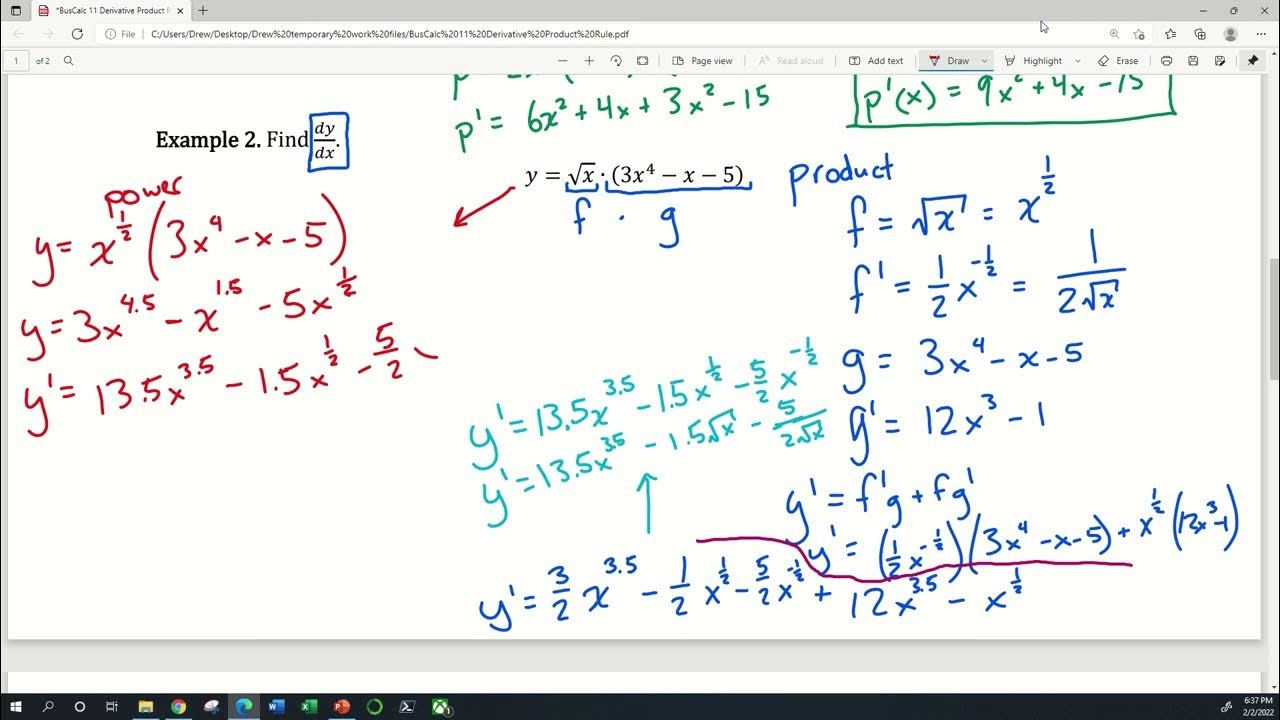 *BusCalc 11 Derivative Product R
File
C:/Users/Drew/Desktop/Drew%20temporary%20work%20files/BusCalc%2011%20Derivative%20Product%20Rule.pdf
1 of 2
Page view
Read aloud
Add text
Draw
Highlight
Erase
p' = 6x² + 4x + 3x² - 15
p'(x) = 9x² + 4x - 15
Example 2. Find dy/dx.
y = √x · (3x⁴ − x − 5)
f · g
power
y = x^(1/2) (3x⁴ - x - 5)
y = 3x^4.5 - x^1.5 - 5x^(1/2)
y' = 13.5x^3.5 - 1.5x^(1/2) - 5/2
product
f = √x = x^(1/2)
f' = 1/2 x^(-1/2) = 1/(2√x)
g = 3x⁴ - x - 5
g' = 12x³ - 1
y' = 13.5x^3.5 - 1.5x^(1/2) - 5/2 x^(-1/2)
y' = 13.5x^3.5 - 1.5√x - 5/(2√x)
y' = f'g + fg'
y' = (1/2 x^(-1/2)) (3x⁴ - x - 5) + x^(1/2) (12x³ - 1)
y' = 3/2 x^3.5 - 1/2 x^(1/2) - 5/2 x^(-1/2) + 12x^3.5 - x^(1/2)
6:37 PM
2/2/2022